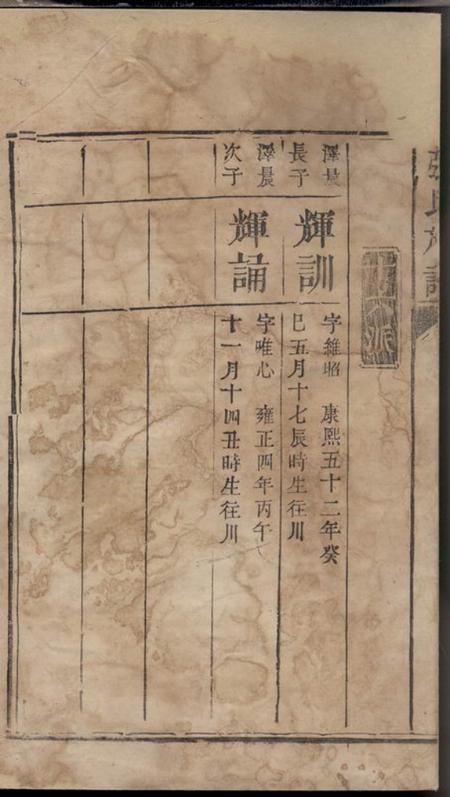 氏族譜
澤晨
長子
輝訓
字維昭 康熙五十二年癸
巳五月十七辰時生往川
澤晨
次子
輝誦
字唯心 雍正四年丙午
十一月十四丑時生往川